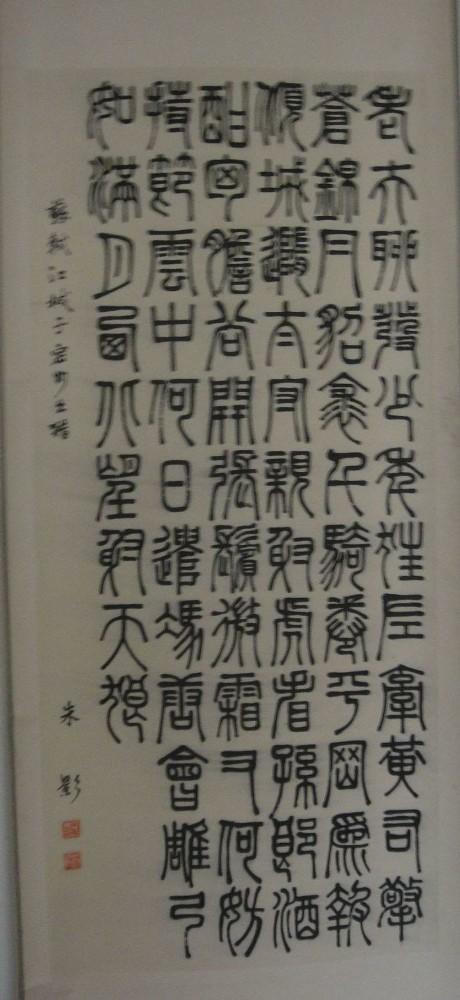 老夫聊發少年狂左牽黃右擎
蒼錦帽貂裘千騎卷平岡爲報
傾城隨太守親射虎看孫郎酒
酣胸膽尚開張鬢微霜又何妨
持節雲中何日遣馮唐會雕弓
如滿月西北望射天狼
蘇軾江城子密州出獵
朱影